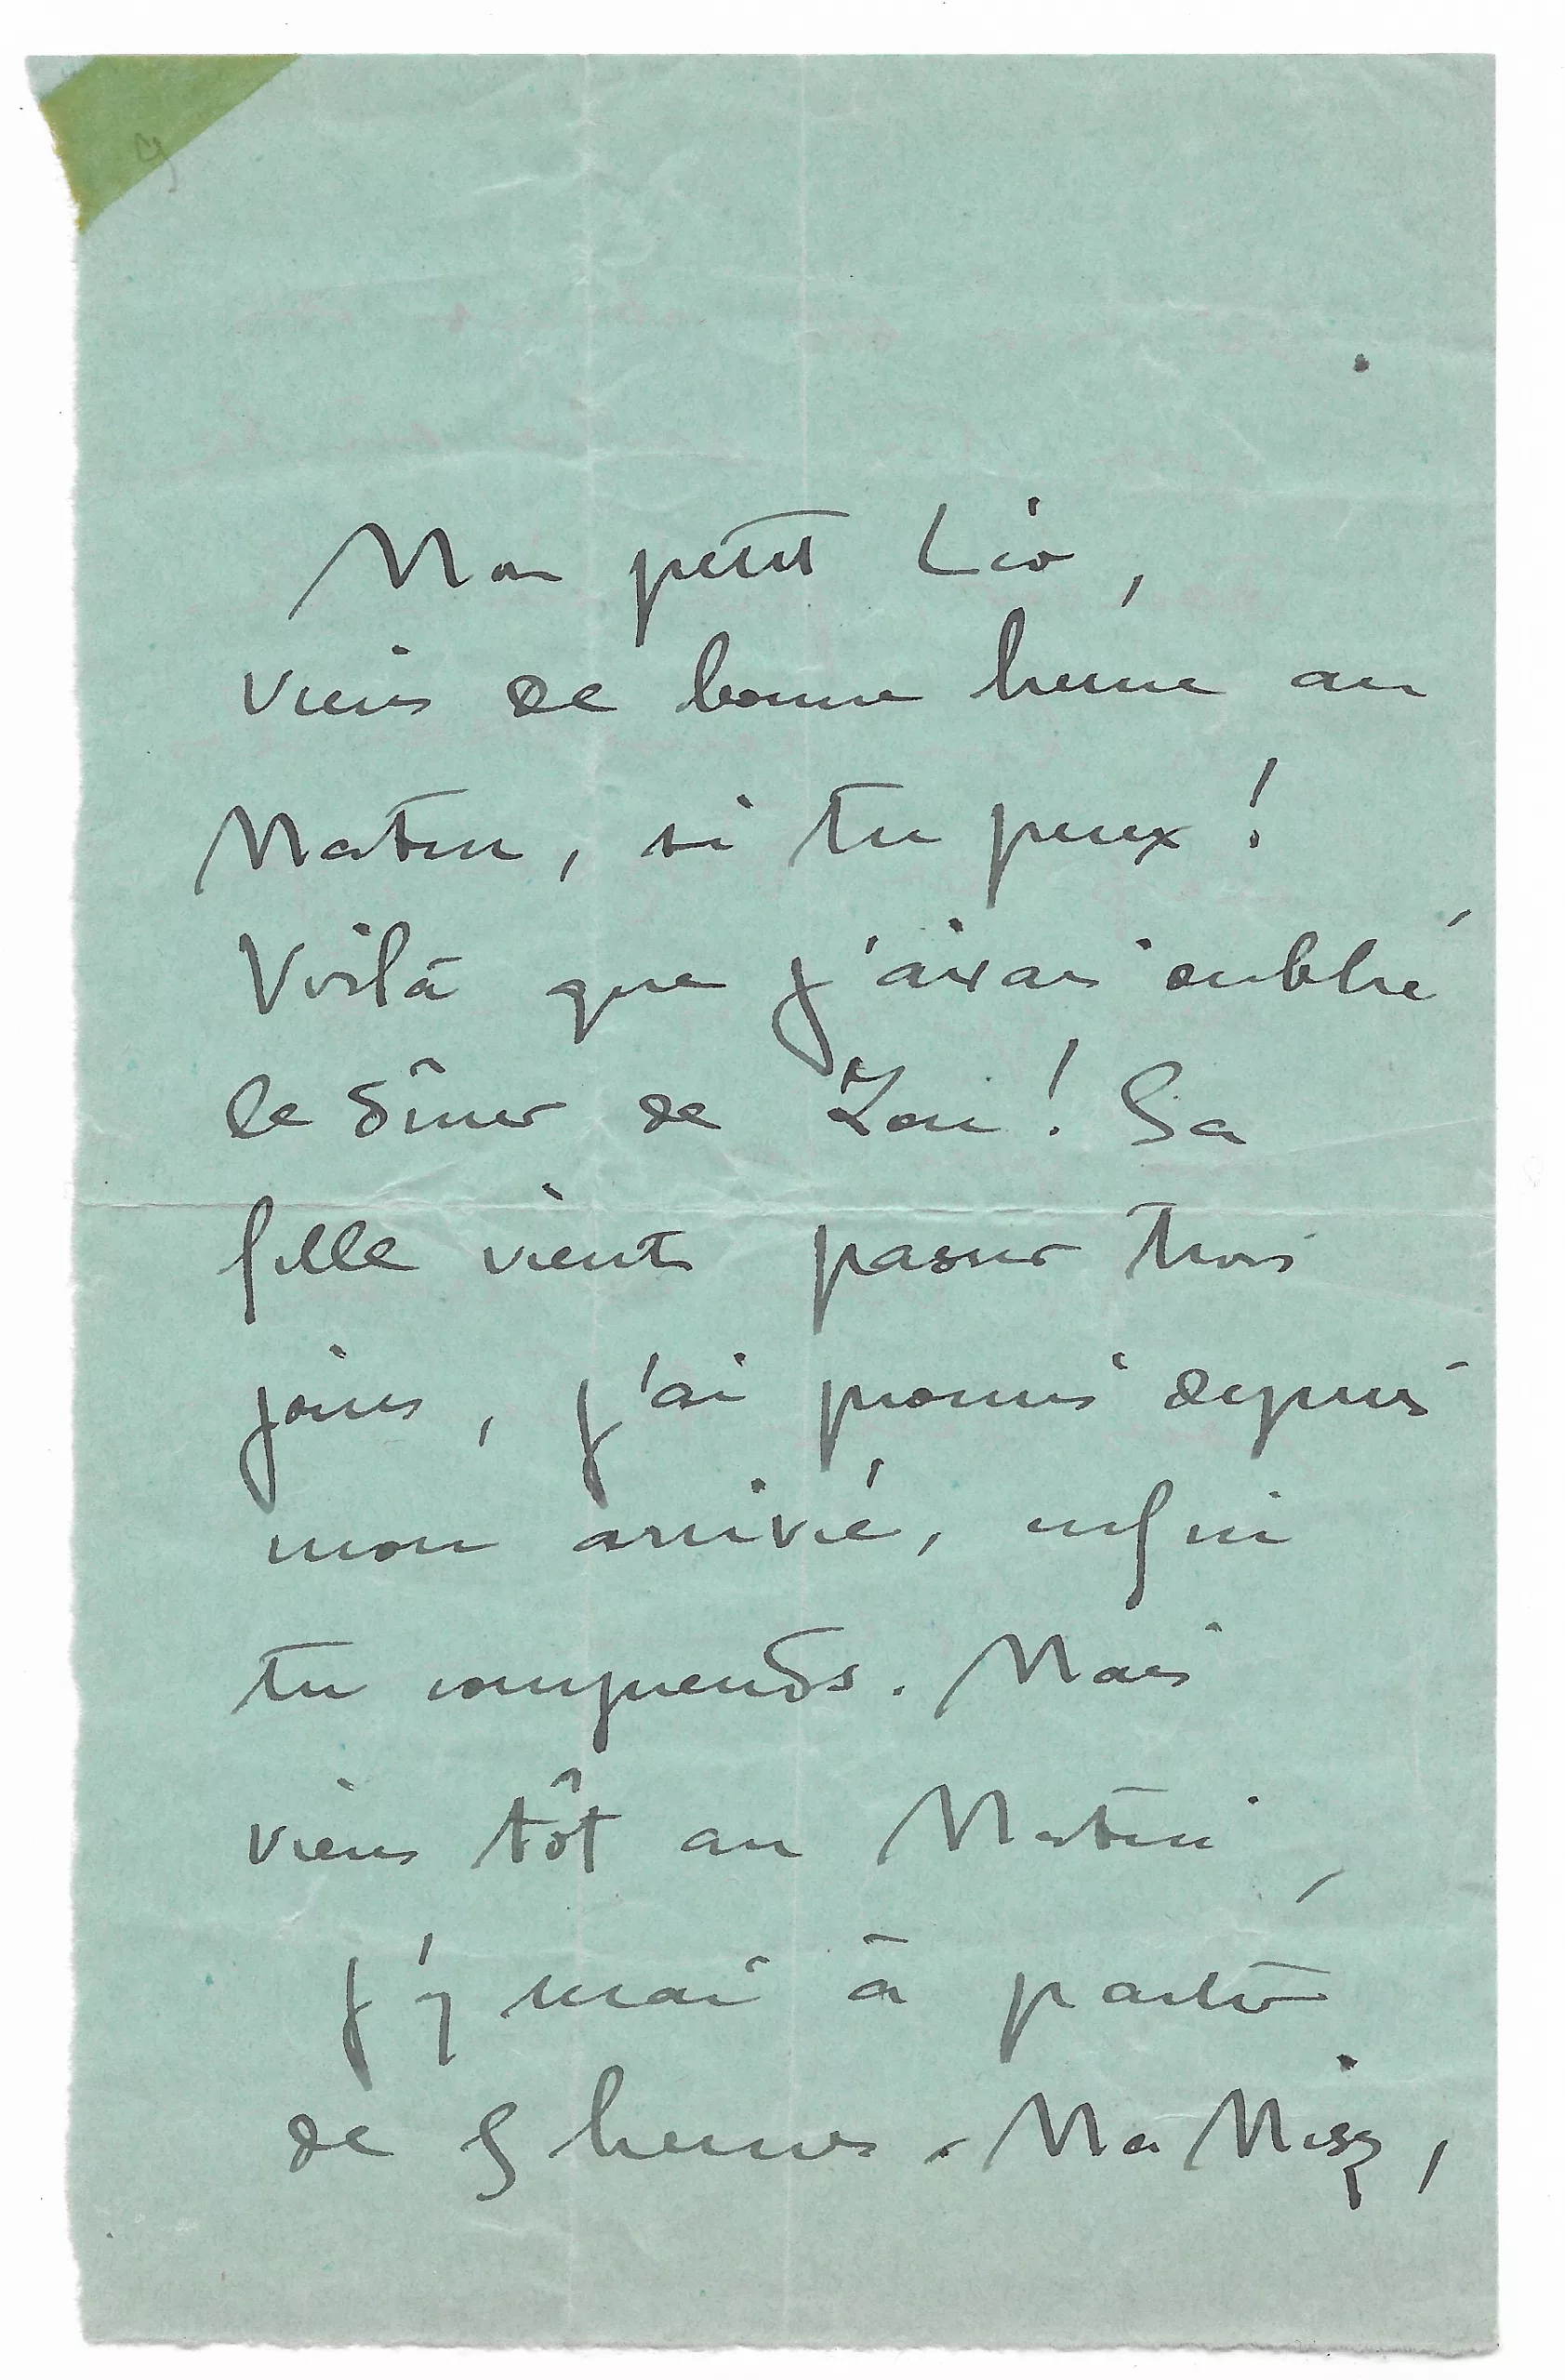 Mon petit Léo,
viens de bonne heure au
Matin, si tu peux !
Voilà que j'avais oublié
le dîner de Zou ! Sa
fille vient passer trois
jours, j'ai promis depuis
mon arrivée, enfin
tu comprends. Mais
viens tôt au Matin,
j'y serai à partir
de 5 heures. Ma